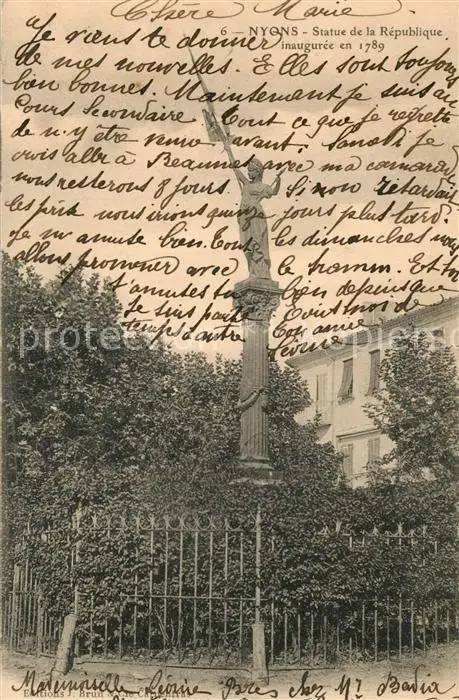 Chère Marie
6 - NYONS - Statue de la République
inaugurée en 1789
Je viens te donner
de mes nouvelles. Elles sont toujours
bien bonnes. Maintenant je suis au
Cours Secondaire. Tout ce que je regrette
de n'y être venue avant. Samedi je
crois allr à Beaumes avec ma camarad
nous resterons 8 jours. Si non retardait
les prix nous irions quinze jours plus tard.
Je m'amuse bien. Tout les dimanches nous
allons promener avec le tramm. Et toi
t'amuses tu bien depuis que
Je suis partie Écris moi de
temps à autre Ton amie
Léonie
protec photocom
Editions J. Brun & Cie Carpentras
Mademoiselle Léonie Bres chez Mr Badia